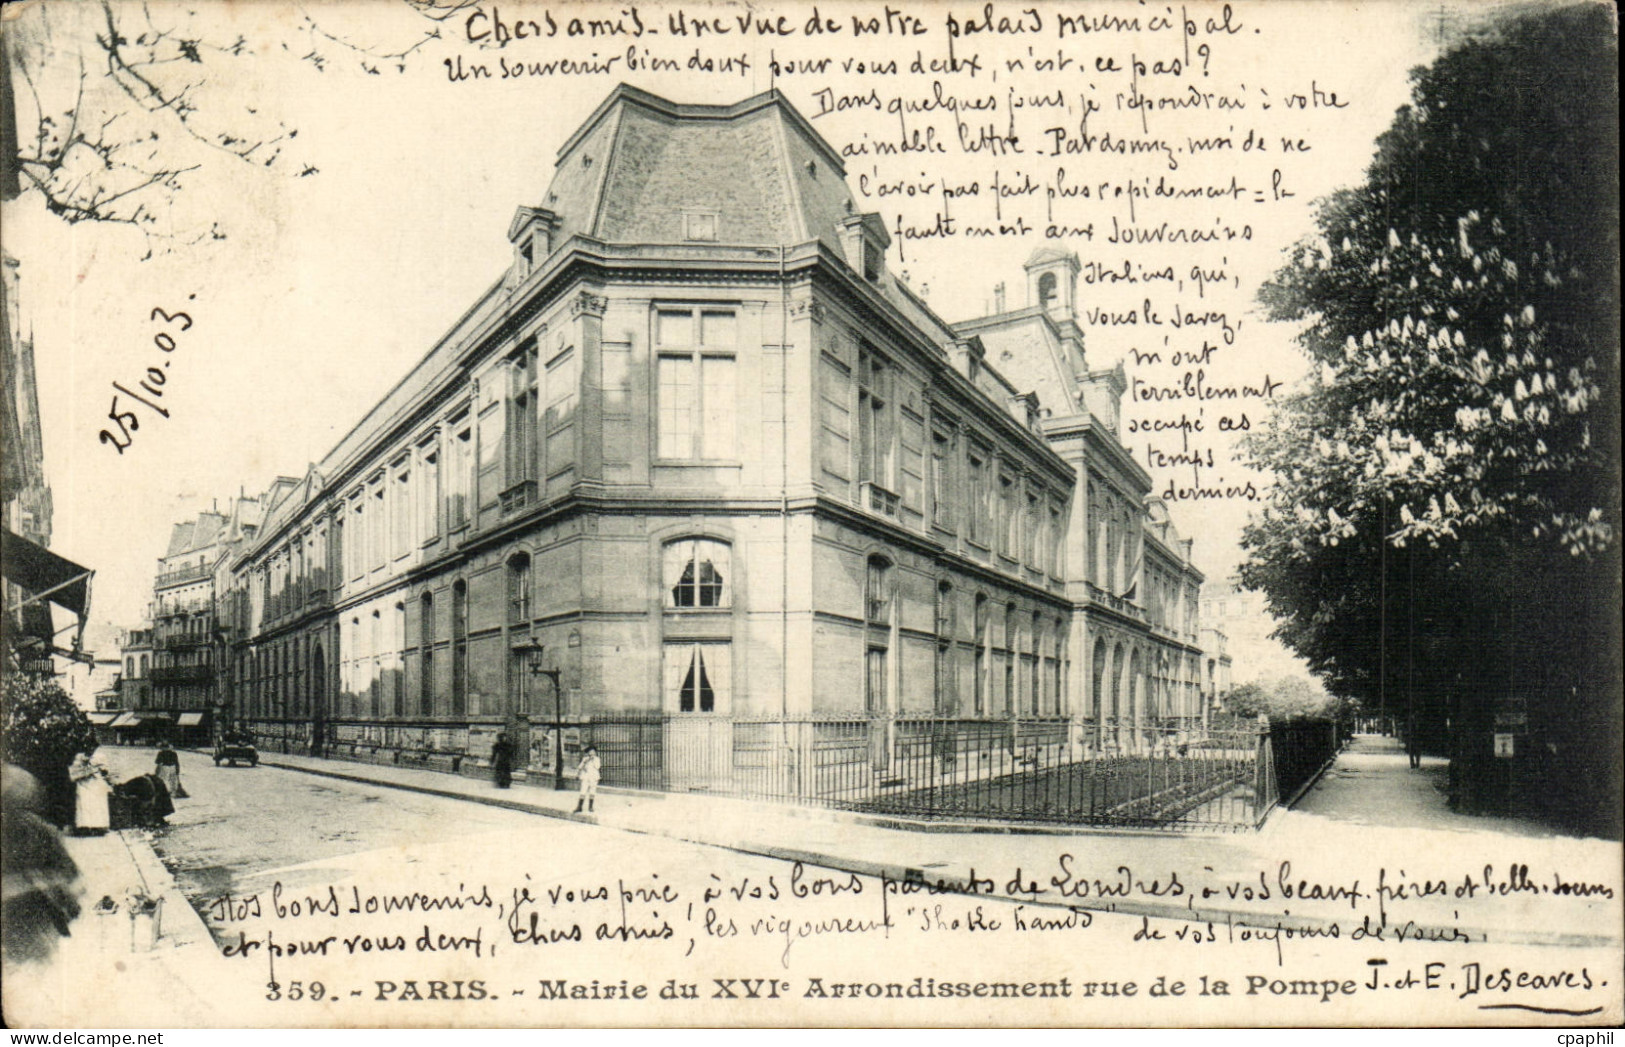 Chers amis - Une vue de notre palais municipal.
Un souvenir bien doux pour vous deux, n'est-ce pas ?
Dans quelques jours, je répondrai à votre
aimable lettre. Pardonnez-moi de ne
l'avoir pas fait plus rapidement = la
faute en est aux souverains
Italiens, qui,
vous le savez,
m'ont
terriblement
occupé ces
temps
derniers.
25/10.03.
COIFFEUR
Nos bons souvenirs, je vous prie, à vos bons parents de Londres, à vos beaux-frères et belles-sœurs
et pour vous deux, chers amis, les vigoureux "Shake hands" de vos toujours dévoués.
359. - PARIS. - Mairie du XVIe Arrondissement rue de la Pompe
J. et E. Descaves.
cpaphil